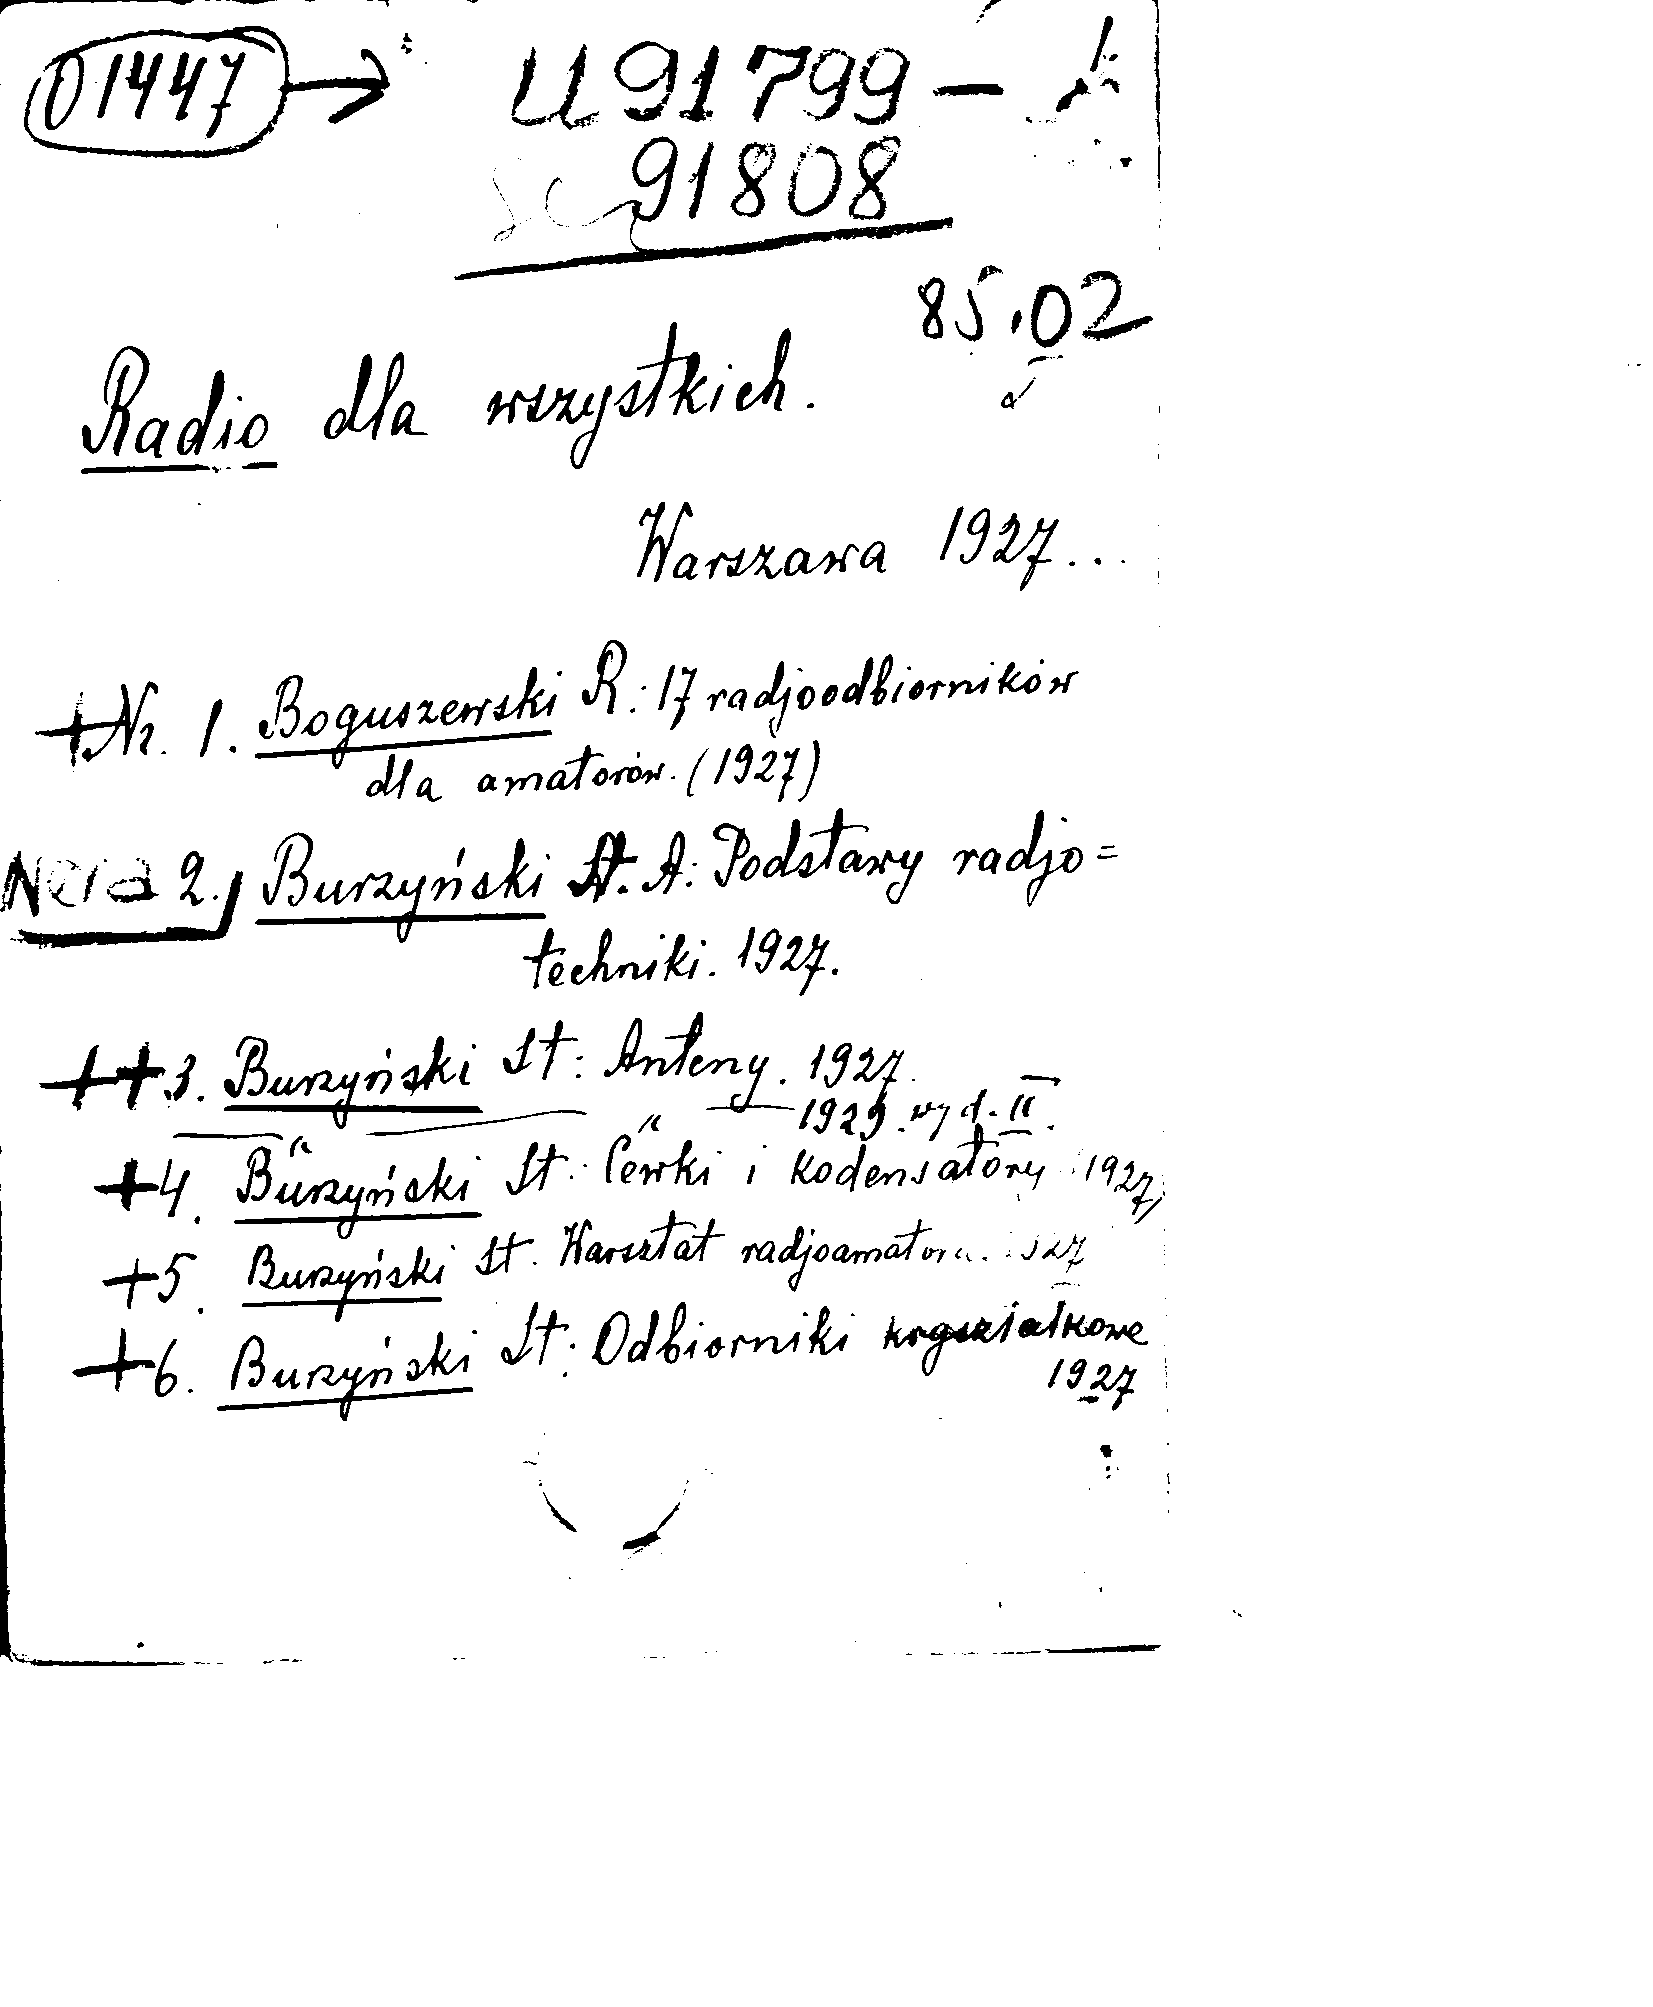 01447 → U 91799 –
91808
85.02
Radio dla wszystkich.
Warszawa 1927...
+ Nr. 1. Boguszewski R: 17 radjoodbiorników
dla amatorów. (1927)
2. Burzyński St. A: Podstawy radjo=
techniki. 1927.
++3. Burzyński St: Anteny. 1927.
— " — " — 1929. wyd. II.
+4. Burzyński St: Cewki i kodensatory 1927
+5. Burzyński St. Warsztat radjoamatora. 1927
+6. Burzyński St: Odbiorniki
1927